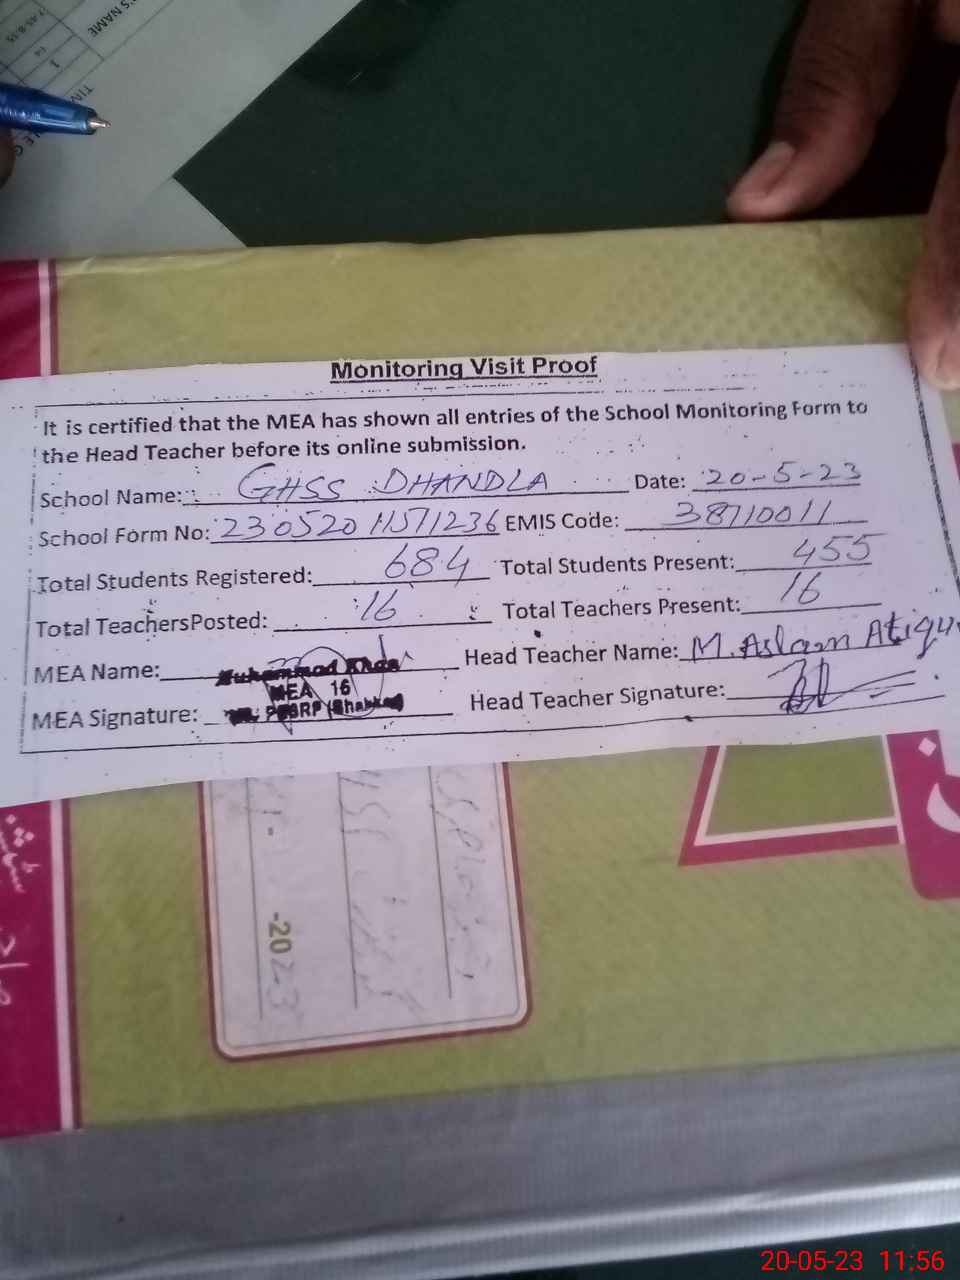 S NAME
Monitoring Visit Proof
It is certified that the MEA has shown all entries of the School Monitoring Form to
the Head Teacher before its online submission.
School Name: GHSS DHANDLA Date: 20-5-23
School Form No: 23052011571236 EMIS Code: 38710011
Total Students Registered: 684 Total Students Present: 455
Total TeachersPosted: 16 Total Teachers Present: 16
MEA Name: Muhammad Head Teacher Name: M. Aslam Atiqu
MEA 16
MEA Signature: Head Teacher Signature:
-2023
20-05-23 11:56